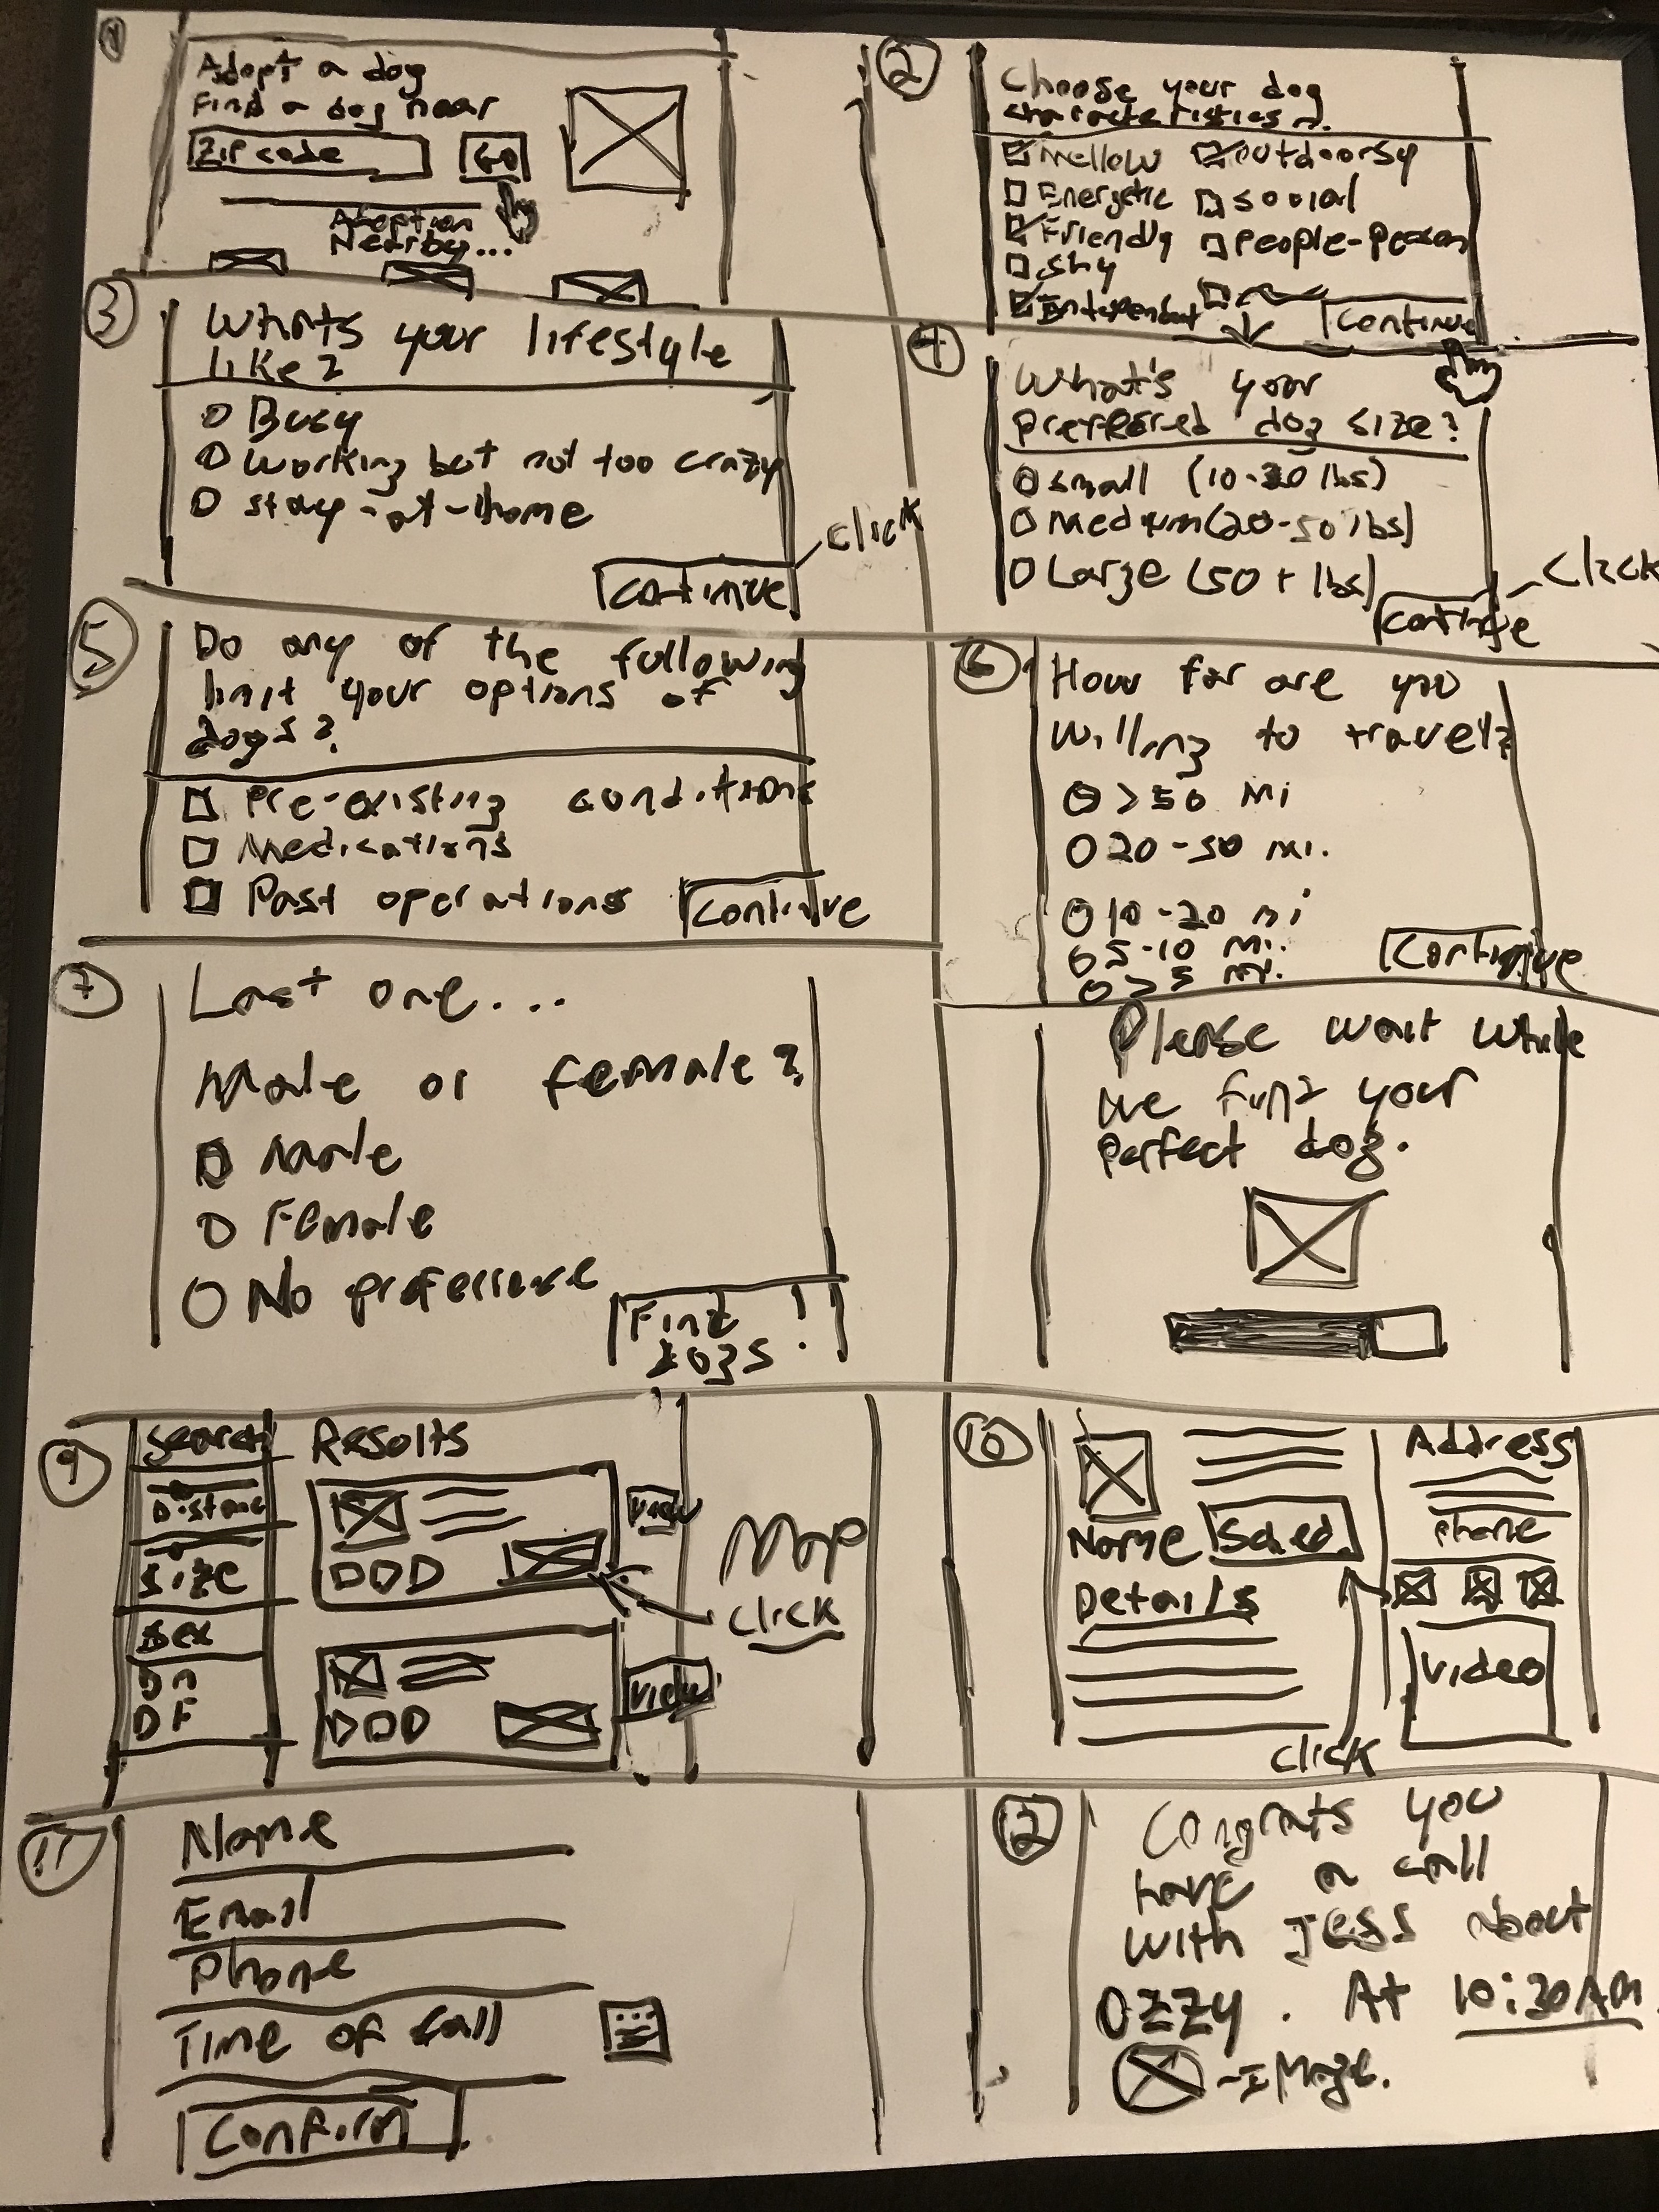 1
Adopt a dog
Find a dog near
Zip code
GO
Adoption
Nearby...
2
Choose your dog
characteristics
Mellow
outdoorsy
Energetic
social
Friendly
people-person
Shy
Independent
Continue
3
Whats your lifestyle
like?
Busy
Working but not too crazy
stay-at-home
continue
click
4
What's your
preferred dog size?
small (10-20 lbs)
Medium (20-50 lbs)
Large (50+ lbs)
continue
click
5
Do any of the following
limit your options of
dogs?
Pre-existing conditions
Medications
Past operations
Continue
6
How far are you
willing to travel?
>50 mi
20-50 mi.
10-20 mi
5-10 mi.
>5 mi.
Continue
7
Last one...
Male or female?
Male
Female
No preference
Find
dogs!
Please wait while
we find your
perfect dog.
9
Search
Results
Distance
Size
Sex
M
F
View
View
Map
click
10
Name
Sched.
Details
Address
Phone
Video
click
11
Name
Email
Phone
Time of call
Confirm
12
Congrats you
have a call
with Jess about
Ozzy. At 10:30AM
-Image.